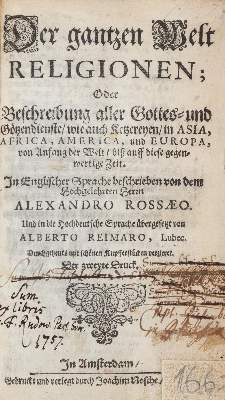 Der gantzen Welt
RELIGIONEN;
Oder
Beschreibung aller Gottes- und
Götzendienste/ wie auch Ketzereyen/ in ASIA,
AFRICA, AMERICA, und EUROPA,
von Anfang der Welt/ biß auff diese gegen-
wertige Zeit.
In Englischer Sprache beschrieben von dem
Hochgelehrten Herrn
ALEXANDRO ROSSÆO.
Und in die Hochdeutsche Sprache übergesetzt von
ALBERTO REIMARO, Lubec.
Durchgehents mit schönen Kupfferstücken verzieret.
Der zweyte Druck.
Sum
libris
1757.
In Amsterdam/
Gedruckt und verlegt durch Joachim Nosche,
166